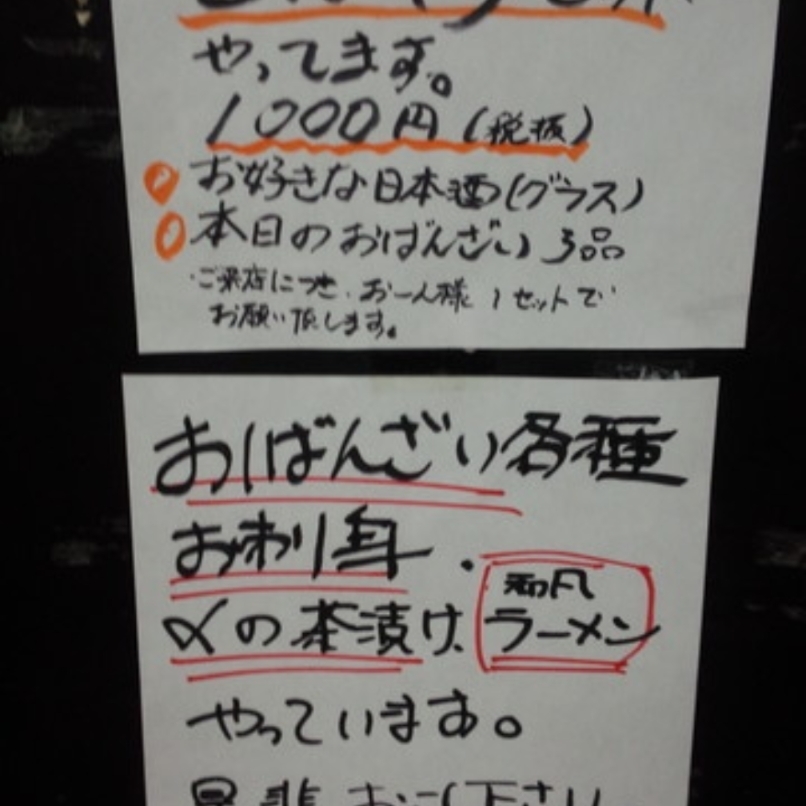 やってます。
1000円(税抜)
お好きな日本酒(グラス)
本日のおばんざい3品
・ご来店につき、お一人様1セットで
お願い致します。
おばんざい各種
お刺身・
〆の茶漬け、
和風
ラーメン
やっています。
是非お